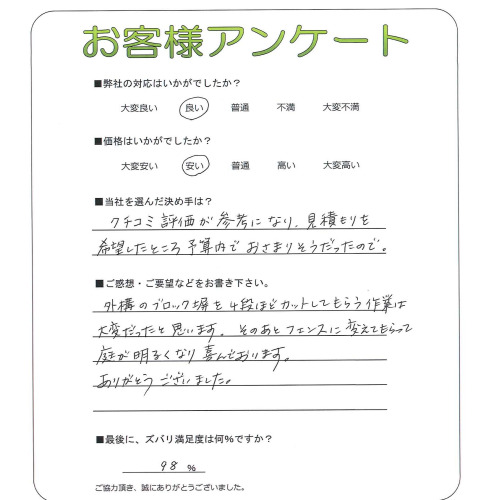 お客様アンケート
■弊社の対応はいかがでしたか？
大変良い 良い 普通 不満 大変不満
■価格はいかがでしたか？
大変安い 安い 普通 高い 大変高い
■当社を選んだ決め手は？
クチコミ評価が参考になり、見積もりを
希望したところ予算内でおさまりそうだったので。
■ご感想・ご要望などをお書き下さい。
外構のブロック塀を4段ほどカットしてもらう作業は
大変だったと思います。そのあとフェンスに変えてもらって
庭が明るくなり喜んでおります。
ありがとうございました。
■最後に、ズバリ満足度は何%ですか？
98 %
ご協力頂き、誠にありがとうございました。